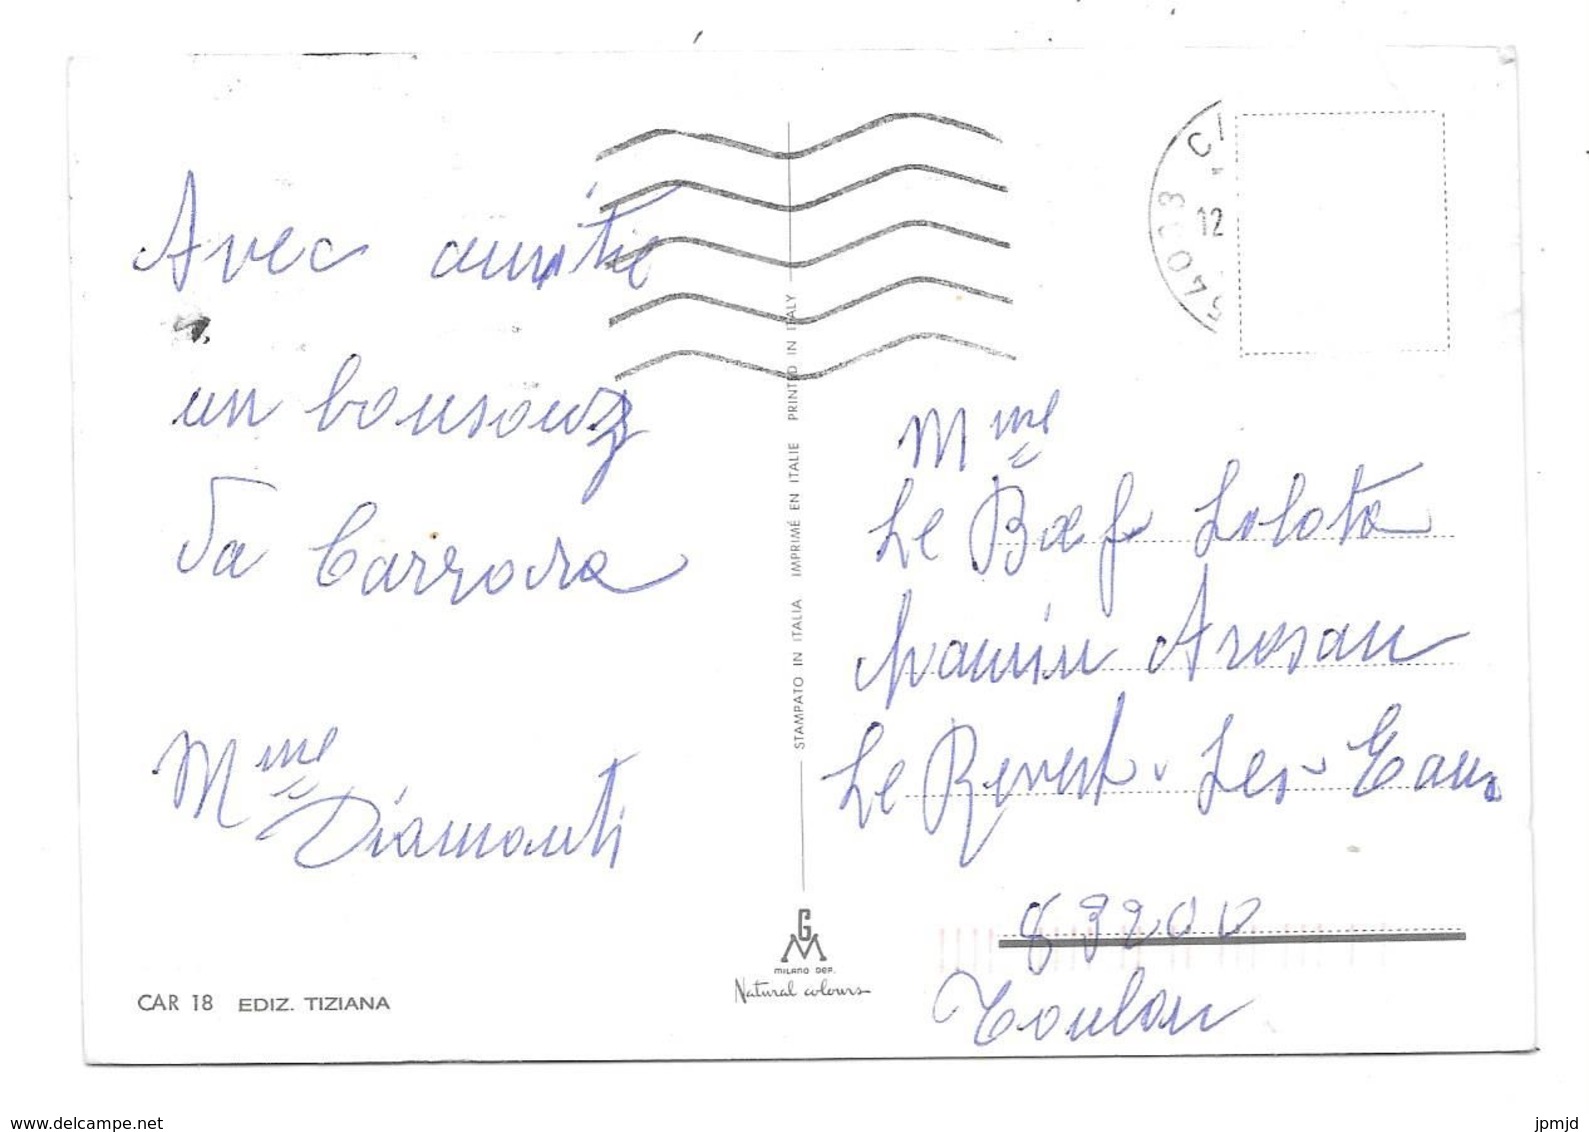 Avec amitie
un bonsouz
Da Carrara
Mme
Diamanti
CAR 18 EDIZ. TIZIANA
STAMPATO IN ITALIA IMPRIMÉ EN ITALIE PRINTED IN ITALY
GM
MILANO DEP.
Natural colours
54033 CA
12
Mme
Le Bœf Lolota
Le Revest-Les-Eaux
83200
Toulon
www.delcampe.net
jpmjd